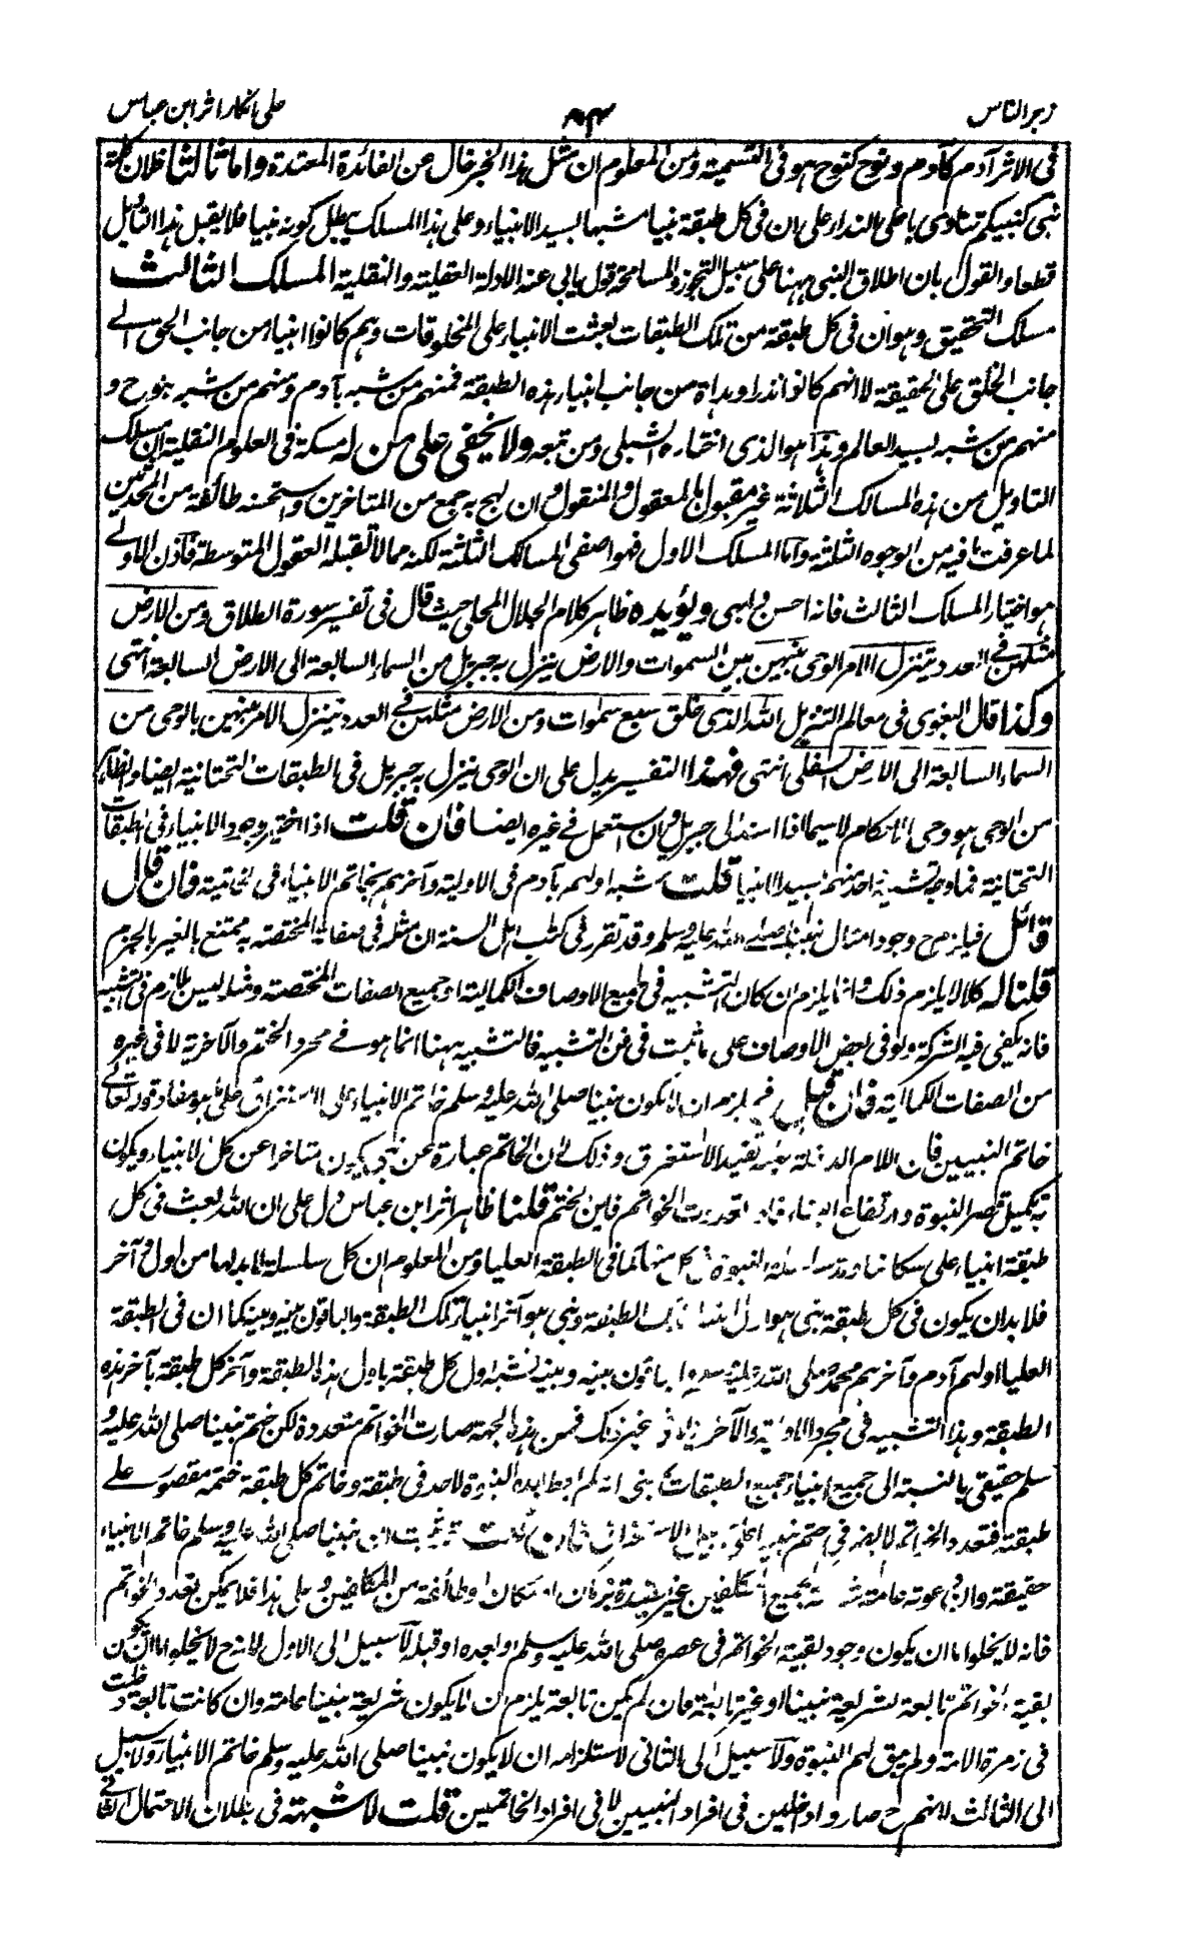 زجر الناس
على انكار اثر ابن عباس
فى الاثر آدم كآدم ونوح كنوح هو فى التسمية ومن المعلوم ان مثل هذا الخبر خال عن الفائدة المعتدة واما ثالثا فلان كلمة
نبى كنبيكم تنادى باعلى النداء على ان فى كل طبقة نبيا مشبها بسيد الانبياء وعلى هذا المسلك يبطل كونه نبيا فلا يقبل هذا التاويل
قطعا والقول بان اطلاق النبى ههنا على سبيل التجوز والمسامحة قول يابى عنه الادلة العقلية والنقلية المسلك الثالث
مسلك التحقيق وهو ان فى كل طبقة من تلك الطبقات بعثت الانبياء على المخلوقات وهم كانوا انبياء من جانب الحق الے
جانب الخلق على الحقيقة لا انهم كانوا نذرا وهداة من جانب انبياء هذه الطبقة فمنهم من شبه بآدم ومنهم من شبه بنوح و
منهم من شبه بسيد العالم وهذا هو الذى اختاره الشبلى ومن تبعه ولا يخفى على من له مسكة فى العلوم النقلية ان مسلك
التاويل من هذه المسالك الثلاثة غير مقبول بالمعقول والمنقول وان لهج به جمع من المتاخرين واستحسنه طائفة من المحدثين
لما عرفت ما فيه من الوجوه الثلثة واما المسلك الاول فهو اصفى المسالك الثلثة لكنه مما لا تقبله العقول المتوسطة فاذن الاولے
هو اختيار المسلك الثالث فانه احسن وابهى ويؤيده ظاهر كلام الجلال المحلى حيث قال فى تفسير سورة الطلاق ومن الارض
مثلهن فے العدد يتنزل الامر الوحى بينهن بين السموات والارض ينزل به جبريل من السماء السابعة الى الارض السابعة انتهى
وكذا قال البغوى فى معالم التنزيل الله الذى خلق سبع سموات ومن الارض مثلهن فے العدد يتنزل الامر بينهن بالوحى من
السماء السابعة الى الارض السفلى انتهى فهذا التفسير يدل على ان الوحى ينزل به جبريل فى الطبقات التحتانية ايضا والظاهر
من الوحى هو وحى الاحكام لا سيما اذا اسند الى جبريل وان استعمل فے غيره ايضا فان قلت اذا اختير وجود الانبياء فى الطبقات
التحتانية فما وجه تشبيه احد منهم بسيد الانبيا قلت شبه اولهم بآدم فى الاولية وآخرهم بخاتم الانبياء فى الخاتمية فان قال
قائل فيلزم ح وجود امثال نبينا صلے الله عليه وسلم وقد تقرر فى كتب اهل السنة ان مثله فى صفاته المختصة به ممتنع بالغير بالجزم
قلنا له كلا لا يلزم ذلك وانما يلزم ان كان التشبيه فى جميع الاوصاف الكمالية او جميع الصفات المختصة وهذا ليس بلازم فى التشبيه
فانه يكفى فيه الشركة ولو فى بعض الاوصاف على ما ثبت فى فن التشبيه فالتشبيه ههنا انما هو فے مجرد الختم والآخرية لا فى غيره
من الصفات الكمالية فان قيل فيلزم ان لا يكون نبينا صلى الله عليه وسلم خاتم الانبياء على الاستغراق على ما هو مفاد قوله تعالے
خاتم النبيين فان اللام الداخلة عليه تفيد الاستغراق وذلك لان الخاتم عبارة عن نبى يكون متاخرا عن كل الانبياء ويكون
به تكميل قصر النبوة وارتفاع البناء فاذا تعددت الخواتم فاين الختم قلنا ظاهر اثر ابن عباس دل على ان الله بعث فى كل
طبقة انبياء على سكانها وقد سلسلة النبوة فى كل منها كما فى الطبقة العليا ومن المعلوم ان كل سلسلة لا بد لها من اول وآخر
فلا بد ان يكون فى كل طبقة نبى هو اول انبياء تلك الطبقة ونبى هو آخر انبياء تلك الطبقة والباقون بينه وبينه كما ان فى الطبقة
العليا اولهم آدم وآخرهم محمد صلى الله عليه وسلم والباقون بينه وبينه فشبه اول كل طبقة باول هذه الطبقة وآخر كل طبقة بآخر هذه
الطبقة وهذا التشبيه فى مجرد الاولية والآخرية لا فى غير ذلك فمن هذه الجهة صارت الخواتم متعددة لكن ختم نبينا صلى الله عليه و
سلم حقيقى بالنسبة الى جميع انبياء جميع الطبقات بمعنى انه لم يعط بعده النبوة لاحد فى طبقة وخاتم كل طبقة ختمه مقصور علے
طبقته فتعدد الخواتم لا يضر فى ختم نبينا صلى الله عليه وسلم خاتم الانبياء
حقيقة وان دعوته عامة شاملة لجميع المكلفين غير مقيدة بزمان او مكان او طائفة من المكلفين وعلى هذا فلا يمكن تعدد الخواتم
فانه لا يخلوا ما ان يكون وجود بقية الخواتم فى عصره صلى الله عليه وسلم او بعده او قبله لا سبيل الى الاول لانه ح لا يخلوا ما ان يكون
بقية الخواتم تابعة لشريعة نبينا او غير تابعة فان لم يكن تابعة يلزم ان لا يكون شريعة نبينا عامة وان كانت تابعة دخلت
فى زمرة الامة ولم يبق لهم النبوة ولا سبيل الى الثانى لاستلزامه ان لا يكون نبينا صلى الله عليه وسلم خاتم الانبياء ولا سبيل
الى الثالث لانهم ح صاروا داخلين فى افراد النبيين لا فى افراد الخاتمين قلت لا شبهة فى بطلان الاحتمال الثانے